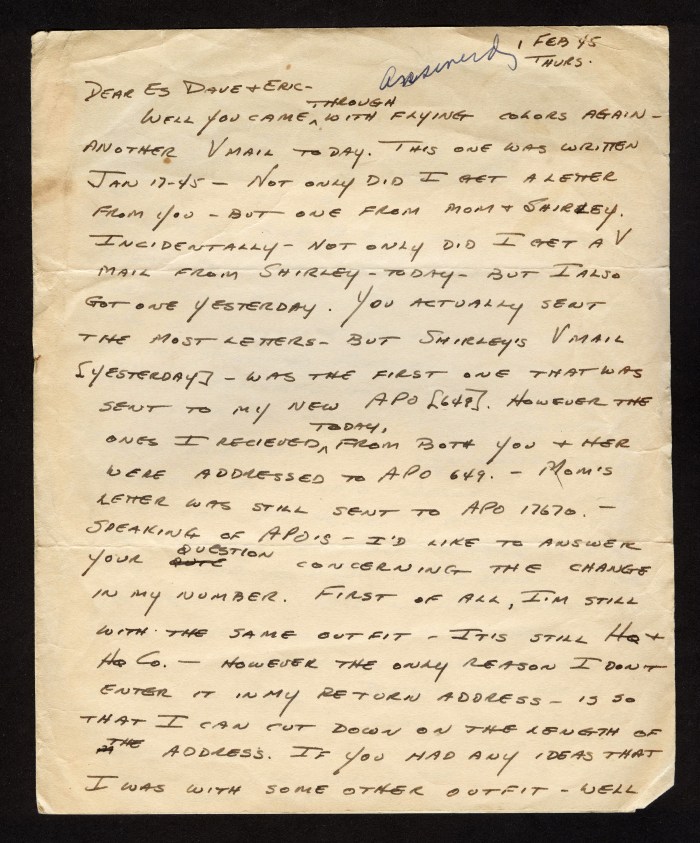 Answered
1 FEB 45
THURS.
DEAR ES DAVE + ERIC-
THROUGH
WELL YOU CAME ^ WITH FLYING COLORS AGAIN -
ANOTHER V MAIL TODAY. THIS ONE WAS WRITTEN
JAN 17-45 - NOT ONLY DID I GET A LETTER
FROM YOU - BUT ONE FROM MOM + SHIRLEY.
INCIDENTALLY - NOT ONLY DID I GET A V
MAIL FROM SHIRLEY - TODAY - BUT I ALSO
GOT ONE YESTERDAY. YOU ACTUALLY SENT
THE MOST LETTERS - BUT SHIRLEY'S V MAIL
[YESTERDAY] - WAS THE FIRST ONE THAT WAS
SENT TO MY NEW APO [649]. HOWEVER THE
TODAY,
ONES I RECIEVED ^ FROM BOTH YOU + HER
WERE ADDRESSED TO APO 649. - MOM'S
LETTER WAS STILL SENT TO APO 17670. -
SPEAKING OF APO'S - I'D LIKE TO ANSWER
QUESTION
YOUR CONCERNING THE CHANGE
IN MY NUMBER. FIRST OF ALL, I'M STILL
WITH THE SAME OUTFIT - IT'S STILL HQ +
HQ CO. - HOWEVER THE ONLY REASON I DON'T
ENTER IT IN MY RETURN ADDRESS - IS SO
THAT I CAN CUT DOWN ON THE LENGTH OF
THE ADDRESS. IF YOU HAD ANY IDEAS THAT
I WAS WITH SOME OTHER OUTFIT - WELL